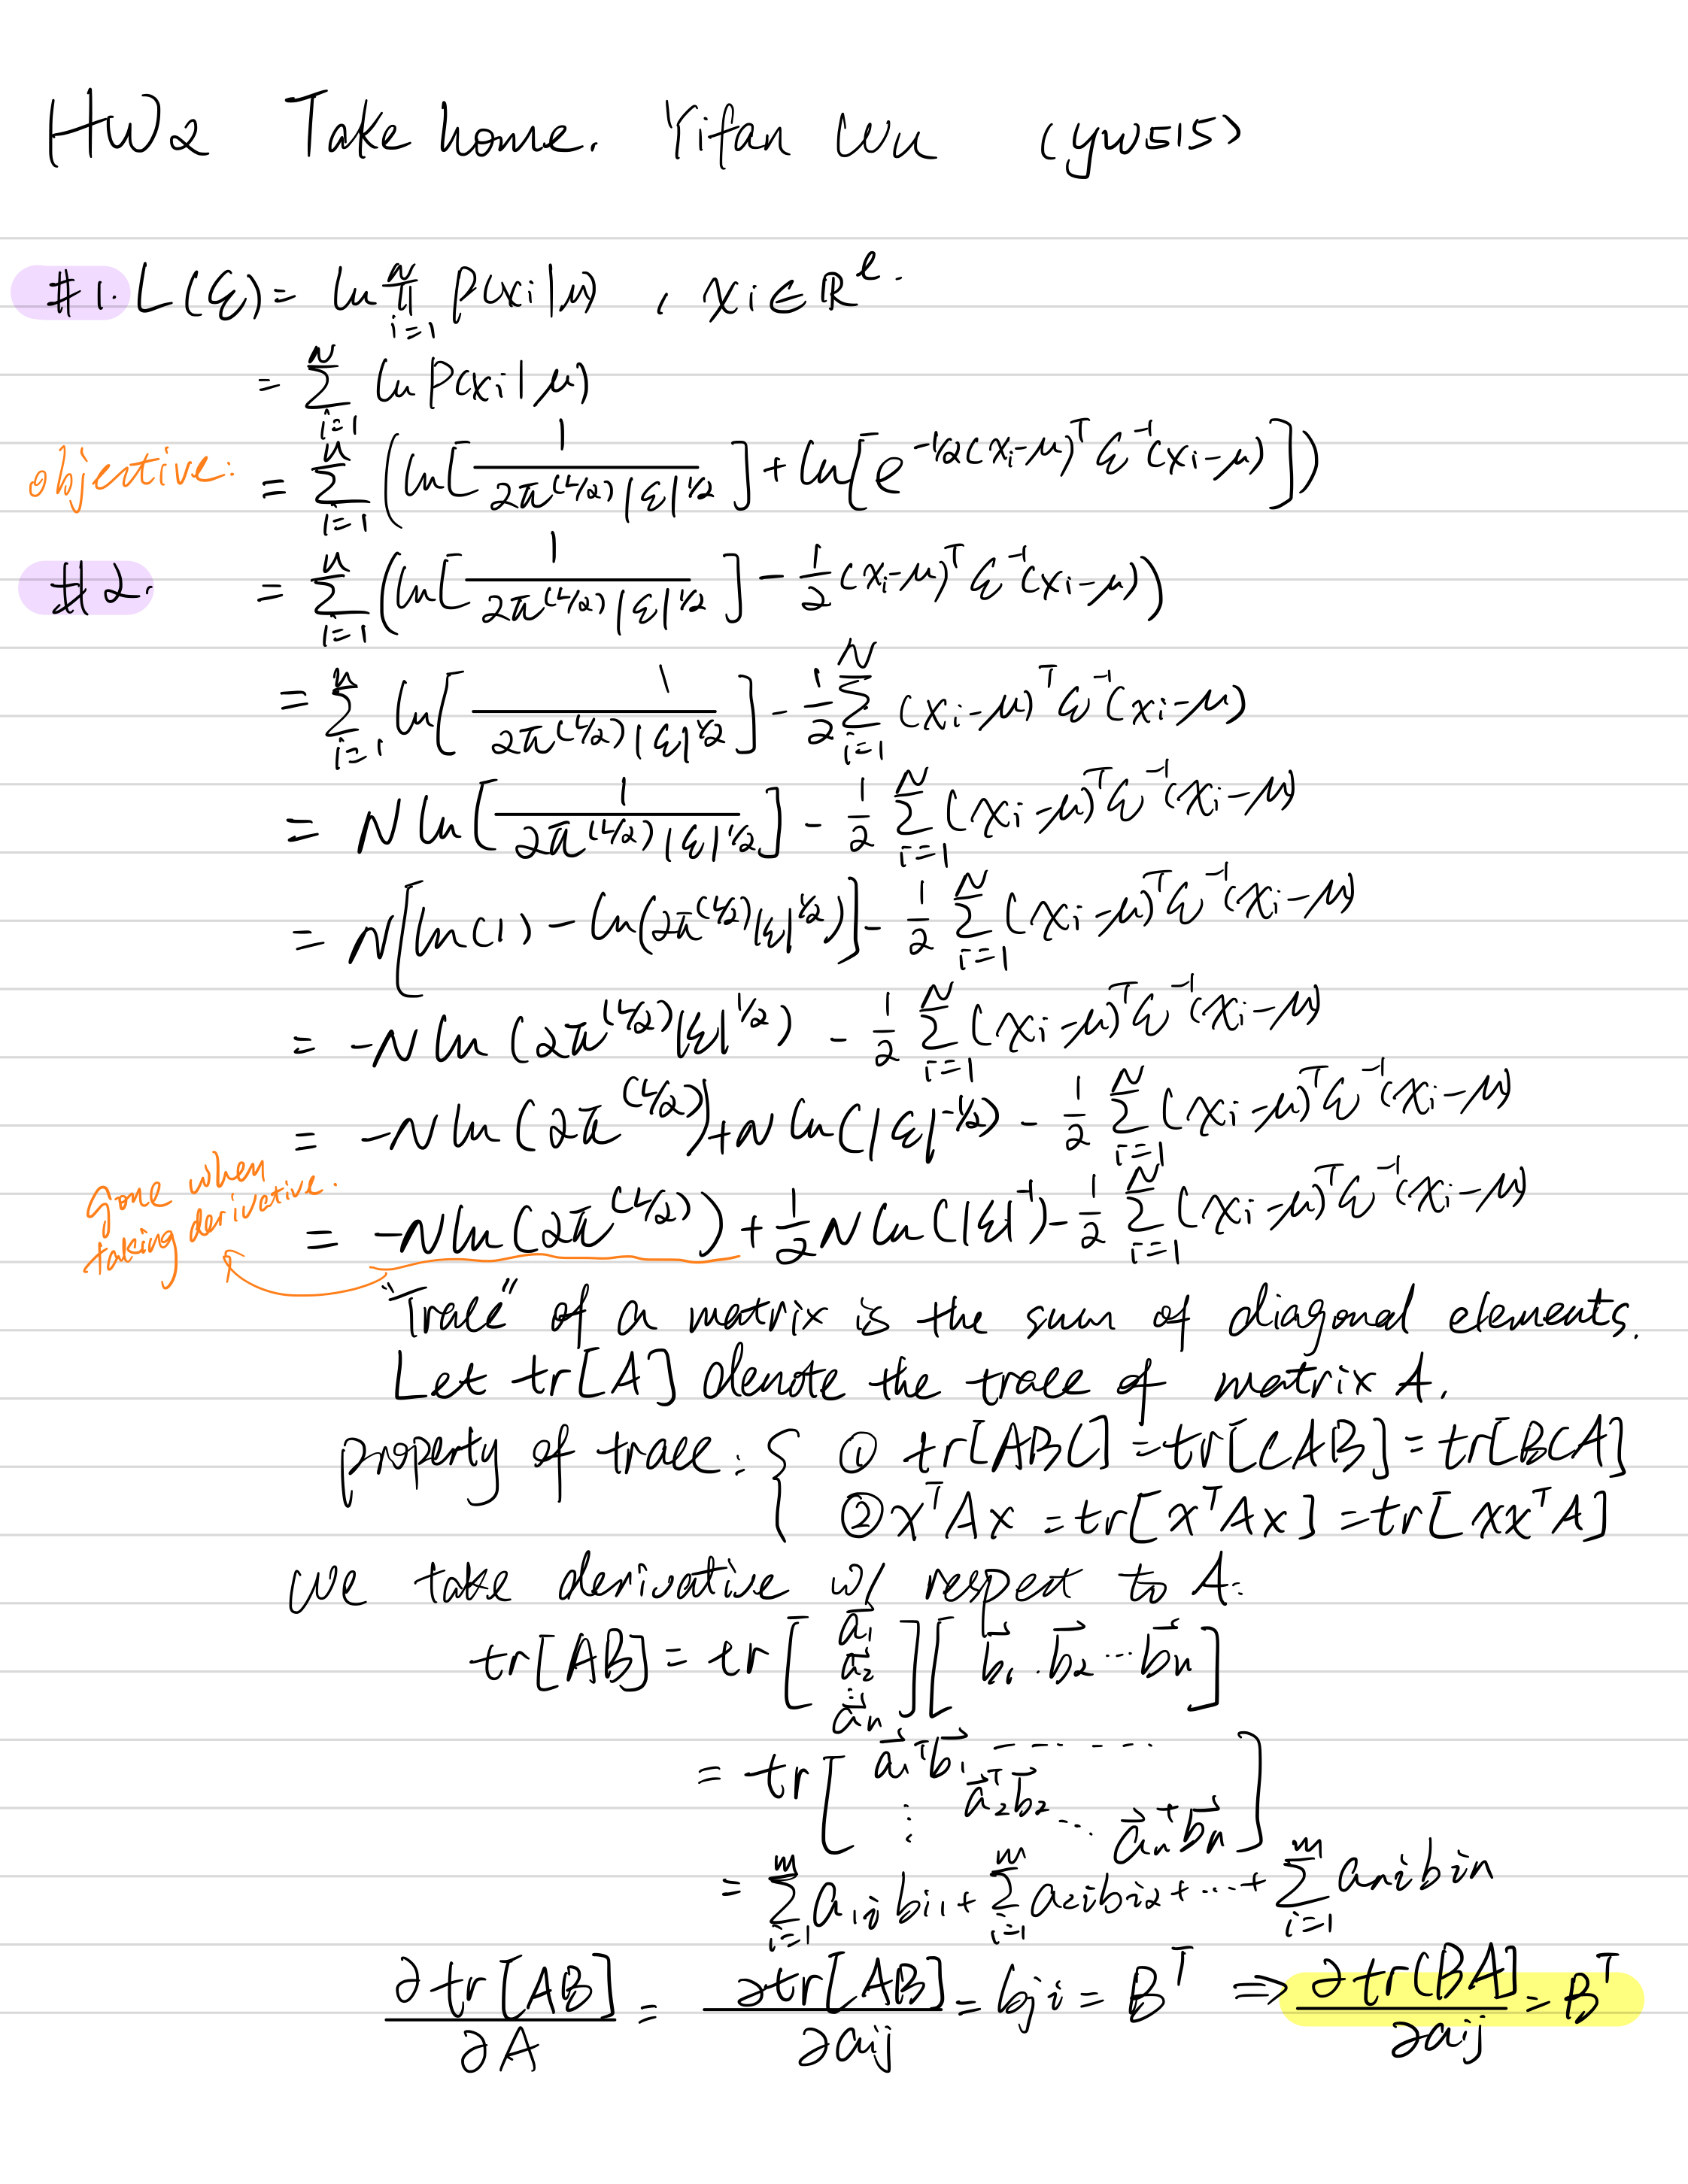 HW2 Take home. Yifan Wu (yw515)
#1. L(Σ) = ln ∏_{i=1}^{N} P(xi|μ) , xi ∈ ℝ^l.
= ∑_{i=1}^{N} ln P(xi|μ)
objective: = ∑_{i=1}^{N} (ln[1/(2π^(L/2)|Σ|^1/2)] + ln[e^{-1/2(xi-μ)^T Σ^-1(xi-μ)}])
#2. = ∑_{i=1}^{N} (ln[1/(2π^(L/2)|Σ|^1/2)] - 1/2 (xi-μ)^T Σ^-1(xi-μ))
= ∑_{i=1}^{N} ln[1/(2π^(L/2)|Σ|^1/2)] - 1/2 ∑_{i=1}^{N} (xi-μ)^T Σ^-1(xi-μ)
= N ln[1/(2π^(L/2)|Σ|^1/2)] - 1/2 ∑_{i=1}^{N} (xi-μ)^T Σ^-1(xi-μ)
= N[ln(1) - ln(2π^(L/2)|Σ|^1/2)] - 1/2 ∑_{i=1}^{N} (xi-μ)^T Σ^-1(xi-μ)
= -N ln(2π^(L/2)|Σ|^1/2) - 1/2 ∑_{i=1}^{N} (xi-μ)^T Σ^-1(xi-μ)
= -N ln(2π^(L/2)) + N ln(|Σ|^-1/2) - 1/2 ∑_{i=1}^{N} (xi-μ)^T Σ^-1(xi-μ)
gone when
taking derivative.
= -N ln(2π^(L/2)) + 1/2 N ln(|Σ|^-1) - 1/2 ∑_{i=1}^{N} (xi-μ)^T Σ^-1(xi-μ)
"Trace" of a matrix is the sum of diagonal elements.
Let tr[A] denote the trace of matrix A.
property of trace: { ① tr[ABC] = tr[CAB] = tr[BCA]
② x^T Ax = tr[x^T Ax] = tr[xx^T A]
We take derivative w/ respect to A:
tr[AB] = tr[a⃗1 a⃗2 ⋮ a⃗n][b⃗1 . b⃗2 ... b⃗n]
= tr[a⃗1^T b⃗1 ------
⋮ a⃗2^T b⃗2 ... a⃗n^T b⃗n]
= ∑_{i=1}^{m} a1i bi1 + ∑_{i=1}^{m} a2i bi2 + ... + ∑_{i=1}^{m} ani bin
∂tr[AB]/∂A = ∂tr[AB]/∂aij = bji = B^T ⇒ ∂tr[BA]/∂aij = B^T